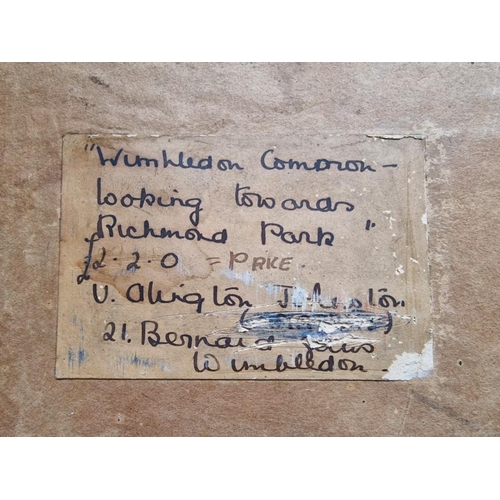 "Wimbledon Common -
looking towards
Richmond Park"
£2.2.0 = PRICE.
V. Alington Johnston
21. Bernard
Wimbledon.